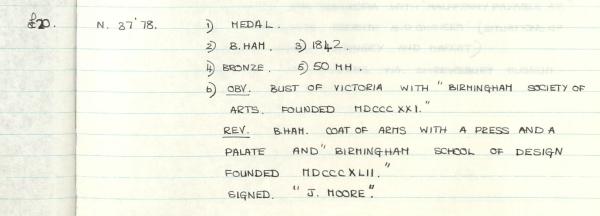 £20. N. 37'78. 1) MEDAL.
2) B.HAM. 3) 1842.
4) BRONZE. 5) 50 MM.
6) OBV. BUST OF VICTORIA WITH "BIRMINGHAM SOCIETY OF
ARTS. FOUNDED MDCCCXXI."
REV. B.HAM. COAT OF ARMS WITH A PRESS AND A
PALATE AND "BIRMINGHAM SCHOOL OF DESIGN
FOUNDED MDCCCXLII."
SIGNED. "J. MOORE".